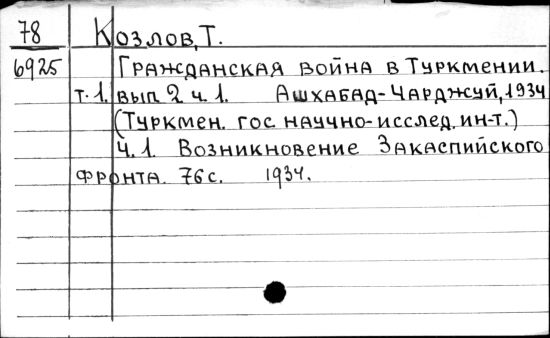 78 Козлов, Т.
6925 Гражданская война в Туркмении.
т.1. вып 2 ч 1. Ашхабад-Чарджуй, 1934
(Туркмен. гос научно-исслед. ин-т.)
Ч.1. Возникновение Закаспийского
фронта. 76 с. 1934.